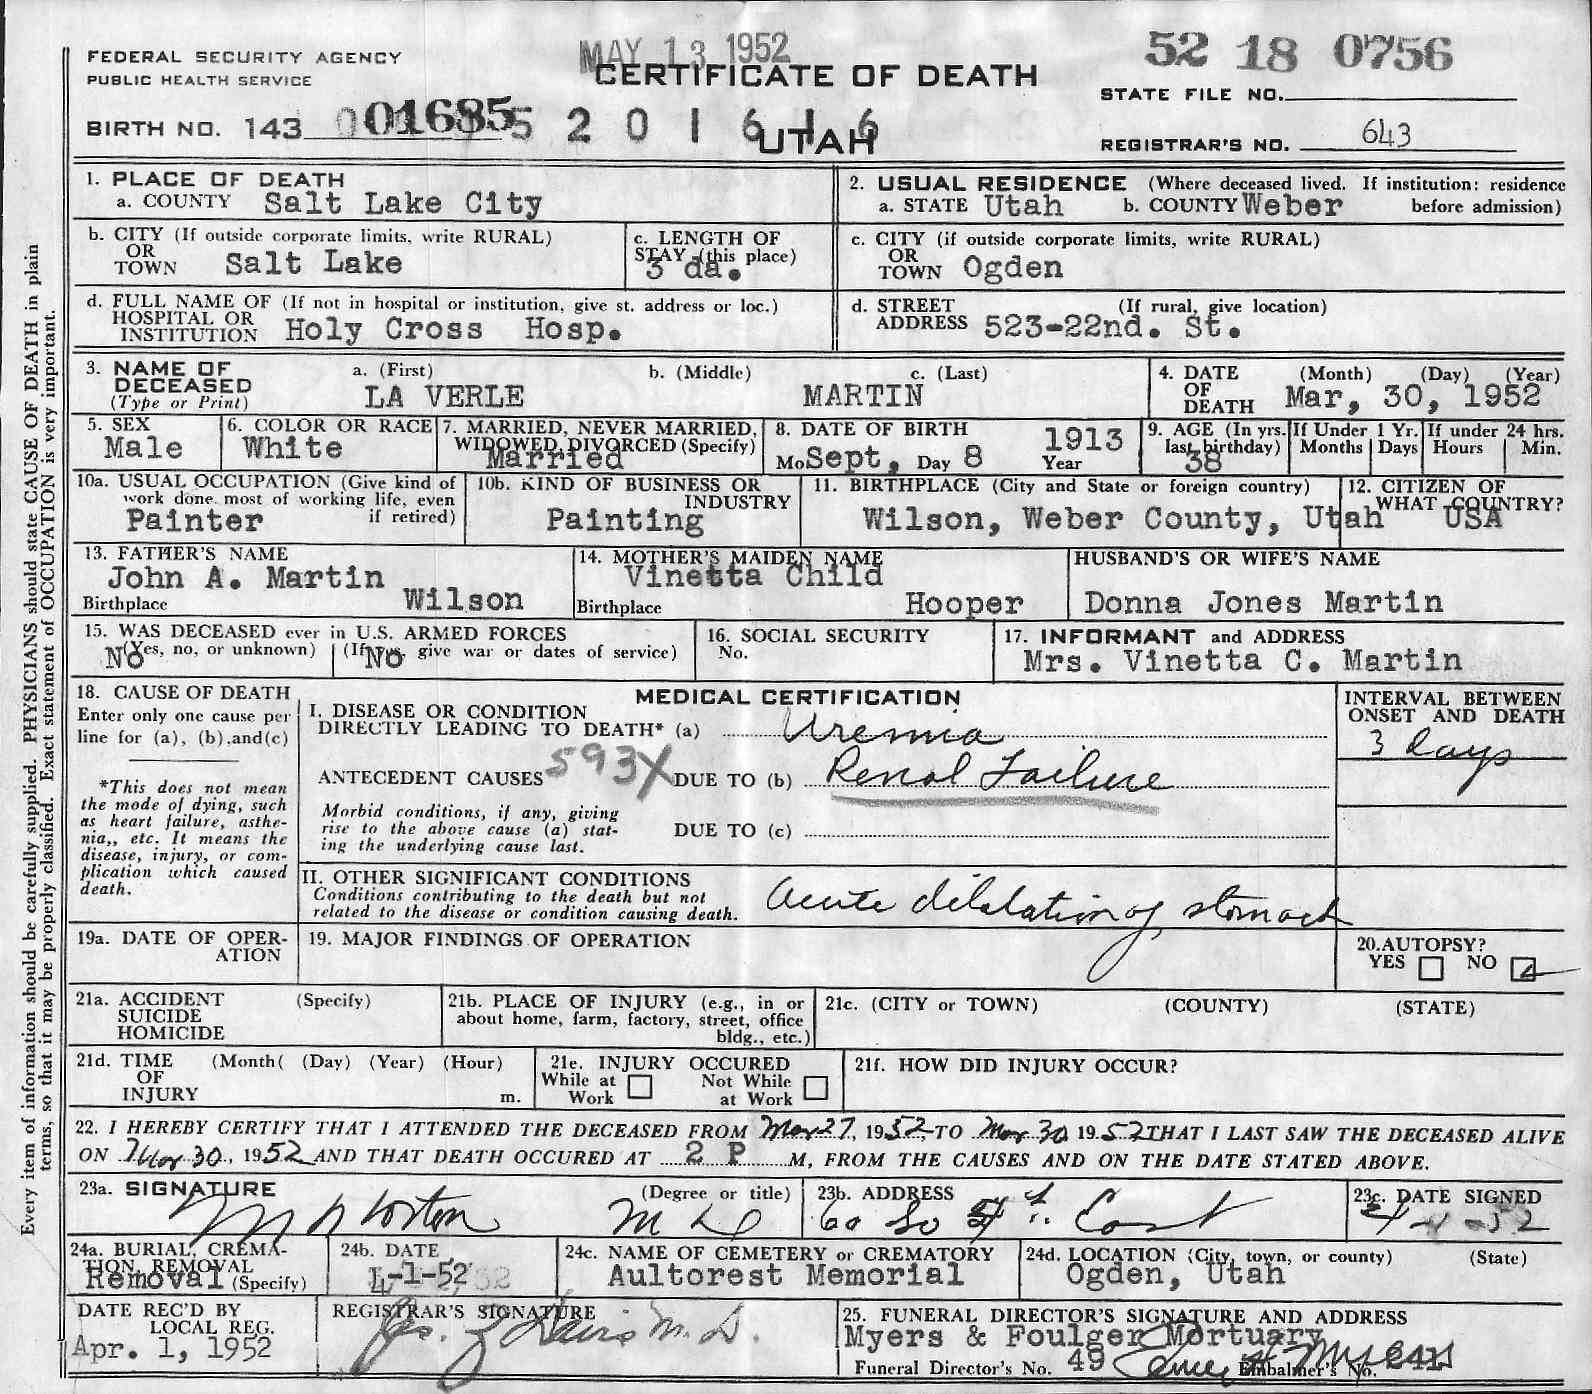 MAY 13 1952
52 18 0756
FEDERAL SECURITY AGENCY
PUBLIC HEALTH SERVICE
CERTIFICATE OF DEATH
STATE FILE NO.
BIRTH NO. 143 01685 5 2 0 1 6 1 6
UTAH
REGISTRAR'S NO. 643
Every item of information should be carefully supplied. PHYSICIANS should state CAUSE OF DEATH in plain
terms, so that it may be properly classified. Exact statement of OCCUPATION is very important.
1. PLACE OF DEATH
a. COUNTY Salt Lake City
2. USUAL RESIDENCE (Where deceased lived. If institution: residence
a. STATE Utah b. COUNTY Weber before admission)
b. CITY (If outside corporate limits, write RURAL)
OR
TOWN Salt Lake
c. LENGTH OF
STAY (this place)
3 da.
c. CITY (if outside corporate limits, write RURAL)
OR
TOWN Ogden
d. FULL NAME OF (If not in hospital or institution, give st. address or loc.)
HOSPITAL OR
INSTITUTION Holy Cross Hosp.
d. STREET (If rural, give location)
ADDRESS 523-22nd. St.
3. NAME OF a. (First) b. (Middle) c. (Last)
DECEASED
(Type or Print) LA VERLE MARTIN
4. DATE (Month) (Day) (Year)
OF
DEATH Mar, 30, 1952
5. SEX
Male
6. COLOR OR RACE
White
7. MARRIED, NEVER MARRIED,
WIDOWED, DIVORCED (Specify)
Married
8. DATE OF BIRTH 1913
Mo Sept, Day 8 Year
9. AGE (In yrs.
last birthday)
38
If Under 1 Yr.
Months Days
If under 24 hrs.
Hours Min.
10a. USUAL OCCUPATION (Give kind of
work done most of working life, even
if retired)
Painter
10b. KIND OF BUSINESS OR
INDUSTRY
Painting
11. BIRTHPLACE (City and State or foreign country)
Wilson, Weber County, Utah
12. CITIZEN OF
WHAT COUNTRY?
USA
13. FATHER'S NAME
John A. Martin
Birthplace Wilson
14. MOTHER'S MAIDEN NAME
Vinetta Child
Birthplace Hooper
HUSBAND'S OR WIFE'S NAME
Donna Jones Martin
15. WAS DECEASED ever in U.S. ARMED FORCES
(Yes, no, or unknown) (If give war or dates of service)
No No
16. SOCIAL SECURITY
No.
17. INFORMANT and ADDRESS
Mrs. Vinetta C. Martin
18. CAUSE OF DEATH
Enter only one cause per
line for (a), (b), and (c)
*This does not mean
the mode of dying, such
as heart failure, asthe-
nia,, etc. It means the
disease, injury, or com-
plication which caused
death.
MEDICAL CERTIFICATION
I. DISEASE OR CONDITION
DIRECTLY LEADING TO DEATH* (a) Uremia
ANTECEDENT CAUSES 593X DUE TO (b) Renal Failure
Morbid conditions, if any, giving
rise to the above cause (a) stat-
ing the underlying cause last.
DUE TO (c)
INTERVAL BETWEEN
ONSET AND DEATH
3 days
II. OTHER SIGNIFICANT CONDITIONS
Conditions contributing to the death but not
related to the disease or condition causing death.
Acute dilatation of stomach
19a. DATE OF OPER-
ATION
19. MAJOR FINDINGS OF OPERATION
20. AUTOPSY?
YES NO
21a. ACCIDENT (Specify)
SUICIDE
HOMICIDE
21b. PLACE OF INJURY (e.g., in or
about home, farm, factory, street, office
bldg., etc.)
21c. (CITY or TOWN) (COUNTY) (STATE)
21d. TIME (Month( (Day) (Year) (Hour)
OF
INJURY m.
21e. INJURY OCCURED
While at Not While
Work at Work
21f. HOW DID INJURY OCCUR?
22. I HEREBY CERTIFY THAT I ATTENDED THE DECEASED FROM Mar 27, 1952, TO Mar 30 1952 THAT I LAST SAW THE DECEASED ALIVE
ON Mar 30, 1952 AND THAT DEATH OCCURED AT 2 P M, FROM THE CAUSES AND ON THE DATE STATED ABOVE.
23a. SIGNATURE (Degree or title)
M D
23b. ADDRESS
60 So 4th East
23c. DATE SIGNED
52
24a. BURIAL, CREMA-
TION, REMOVAL
Removal (Specify)
24b. DATE
4-1-52
24c. NAME OF CEMETERY or CREMATORY
Aultorest Memorial
24d. LOCATION (City, town, or county) (State)
Ogden, Utah
DATE REC'D BY
LOCAL REG.
Apr. 1, 1952
REGISTRAR'S SIGNATURE
Davis M. D.
25. FUNERAL DIRECTOR'S SIGNATURE AND ADDRESS
Myers & Foulger Mortuary
Funeral Director's No. 49 Embalmer's No.